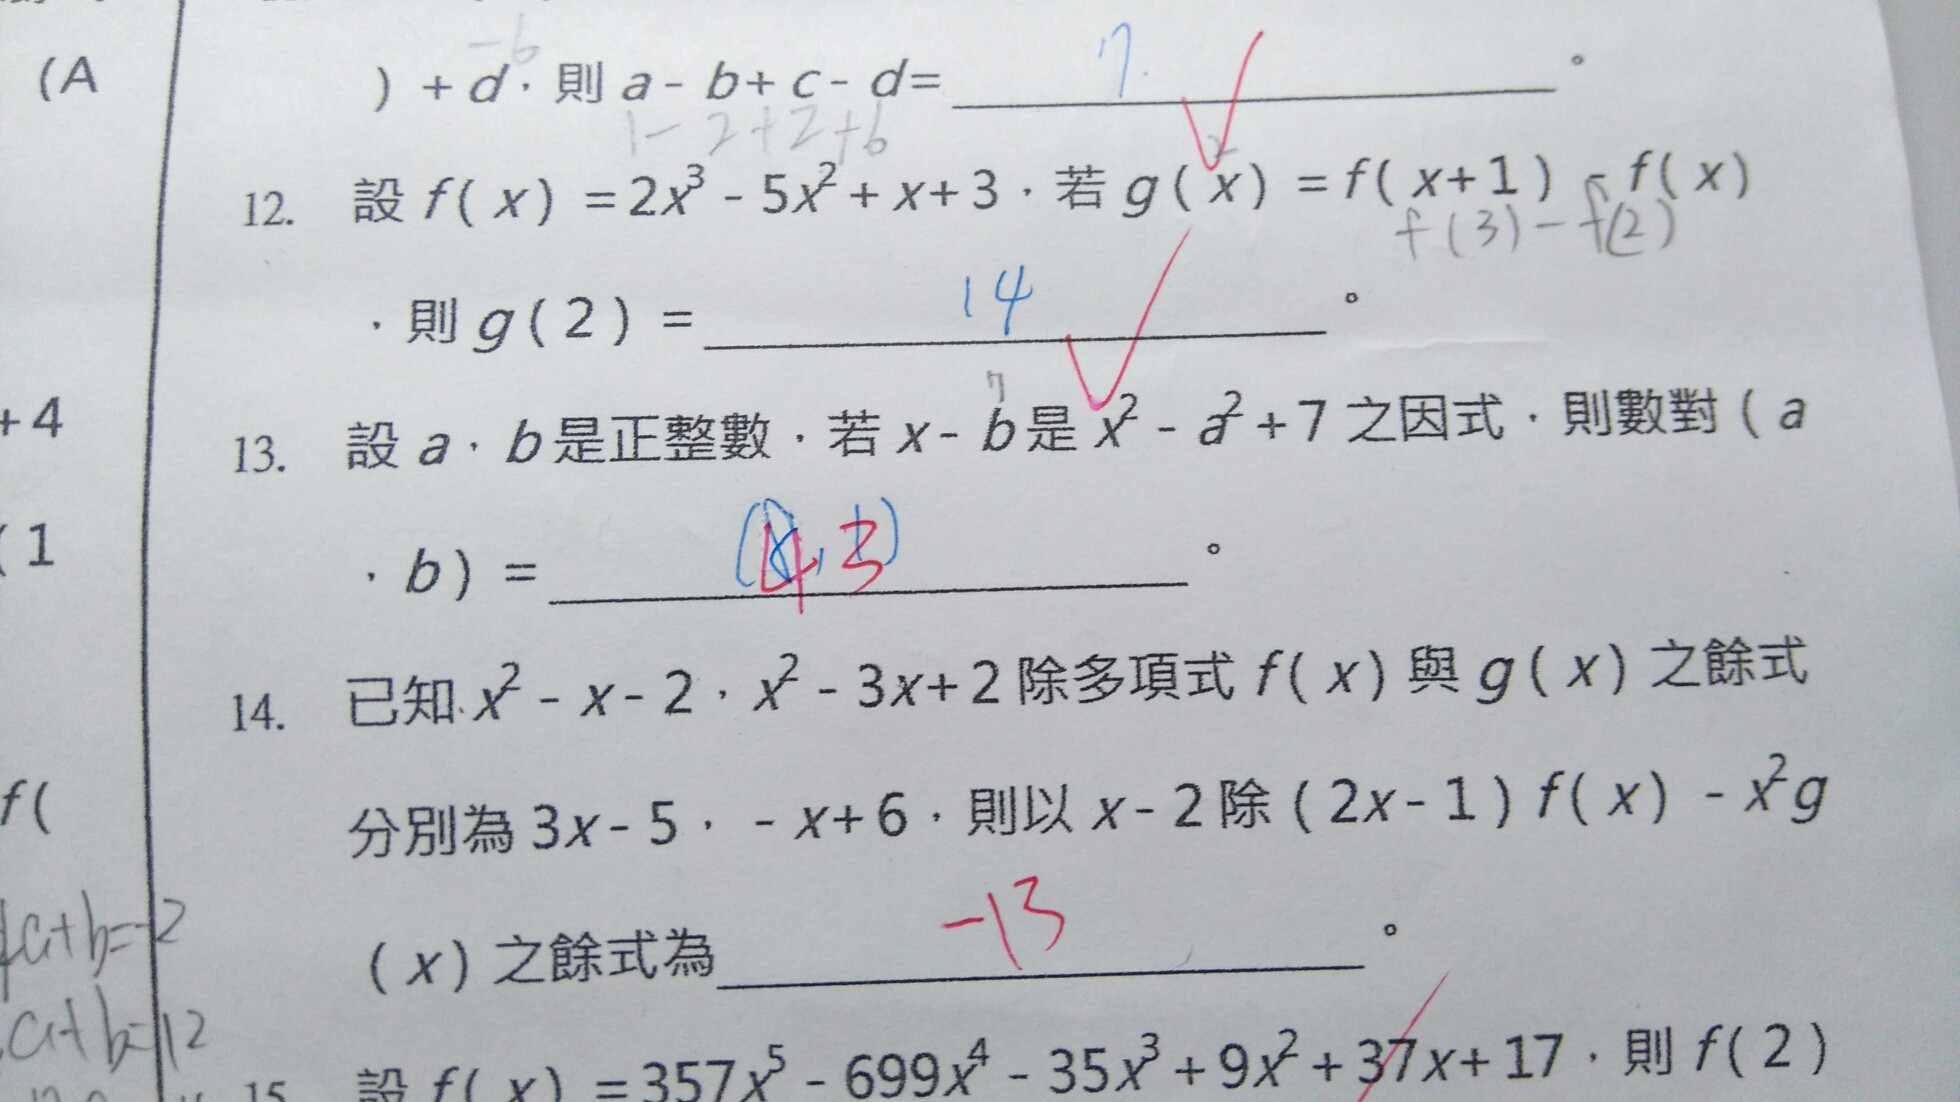 (A
+4
(1
f(
4a+b=-2
a+b=12
-6
)+d，則 a-b+c-d= 7.。
1-2+2+6
2
12. 設 f(x)=2x³-5x²+x+3，若 g(x)=f(x+1)-f(x)
f(3)-f(2)
，則 g(2)= 14。
7
13. 設 a，b 是正整數，若 x-b 是 x²-a²+7 之因式，則數對(a
，b)= (4,3)。
14. 已知 x²-x-2，x²-3x+2 除多項式 f(x) 與 g(x) 之餘式
分別為 3x-5，-x+6，則以 x-2 除(2x-1)f(x)-x²g
(x)之餘式為 -13。
15 設 f(x)=357x⁵-699x⁴-35x³+9x²+37x+17，則 f(2)